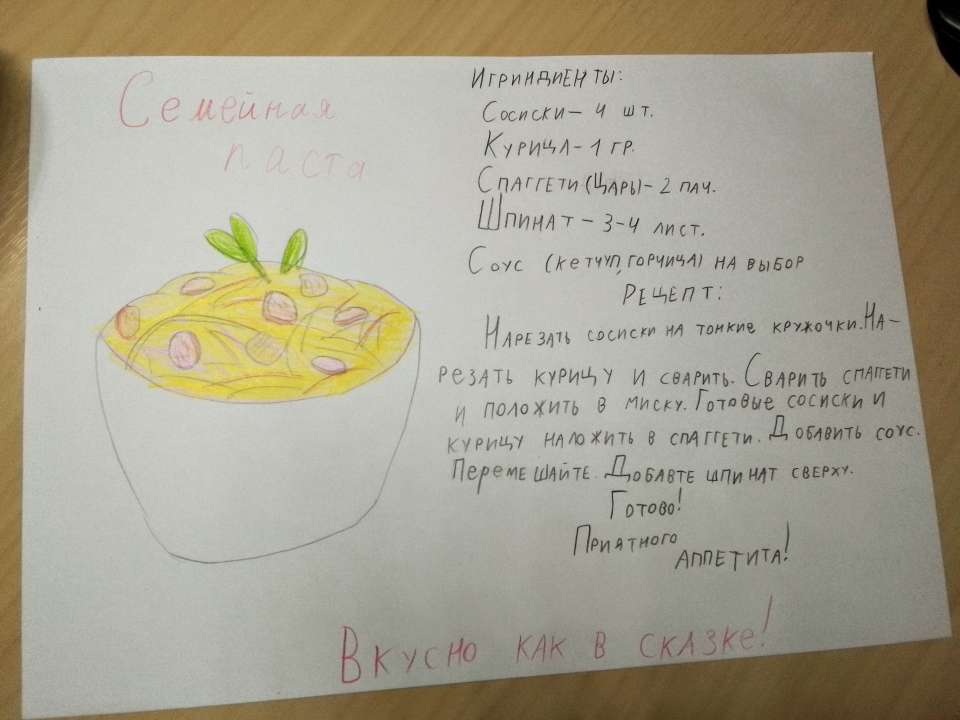 Семейная
паста
Игриндиенты:
Сосиски – 4 шт.
Курица – 1 гр.
Спаггети (Царь) – 2 пач.
Шпинат – 3-4 лист.
Соус (кетчуп, горчица) на выбор
Рецепт:
Нарезать сосиски на тонкие кружочки. На-
резать курицу и сварить. Сварить спаггети
и положить в миску. Готовые сосиски и
курицу наложить в спаггети. Добавить соус.
Перемешайте. Добавте шпинат сверху.
Готово!
Приятного
аппетита!
Вкусно как в сказке!